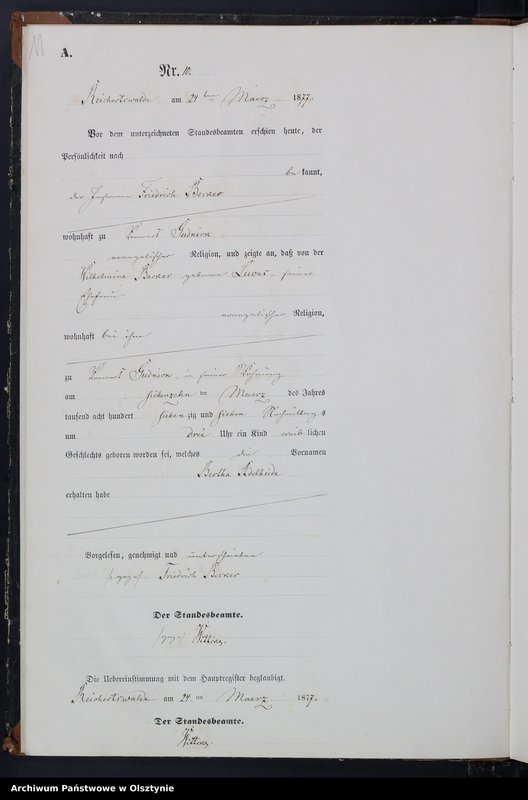 11
A.
Nr. 10.
Reichertswalde am 24ten Maerz 1877.
Vor dem unterzeichneten Standesbeamten erschien heute, der
Persönlichkeit nach
be kannt,
der Instmann Friedrich Becker
wohnhaft zu Vorwerk Gudnick
evangelischer Religion, und zeigte an, daß von der
Wilhelmine Becker geborene Lucas, seiner
Ehefrau
evangelischer Religion,
wohnhaft bei ihm
zu Vorwerk Gudnick, in seiner Wohnung
am siebenzehn ten Maerz des Jahres
tausend acht hundert sieben zig und sieben Nachmittags
um drei Uhr ein Kind weib lichen
Geschlechts geboren worden sei, welches die Vornamen
Bertha Adelheide
erhalten habe
Vorgelesen, genehmigt und unterschrieben
(gez.) Friedrich Becker
Der Standesbeamte.
(gez.)
Die Uebereinstimmung mit dem Hauptregister beglaubigt.
Reichertswalde am 24. ten Maerz 1877.
Der Standesbeamte.
Archiwum Państwowe w Olsztynie